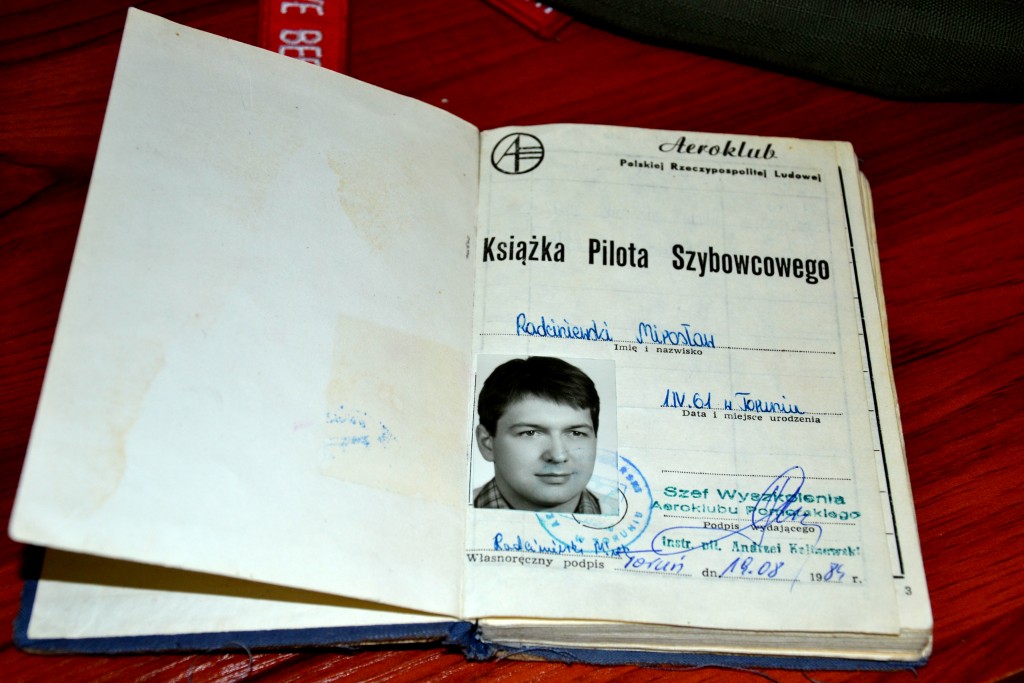 VE BEF
Aeroklub
Polskiej Rzeczypospolitej Ludowej
Książka Pilota Szybowcowego
Radciniewski Mirosław
Imię i nazwisko
1.IV.61 w Toruniu
Data i miejsce urodzenia
Szef Wyszkolenia
Aeroklubu Pomorskiego
Podpis wydającego
instr. pil. Andrzej
Własnoręczny podpis Toruń dn. 19.08 1984 r.
3